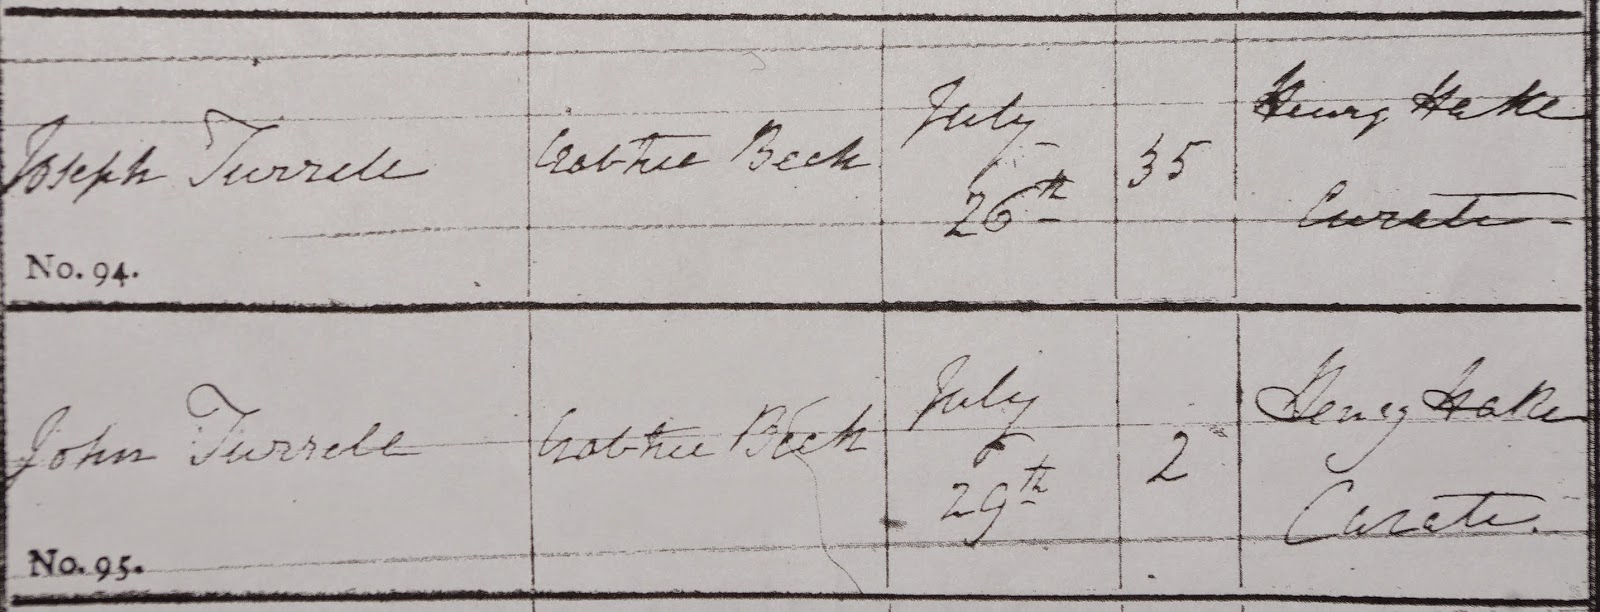 Joseph Turrell Crabtree Beck July 26th 35 Henry Hake Curate
No. 94.
John Turrell Crabtree Beck July 29th 2 Henry Hake Curate.
No. 95.